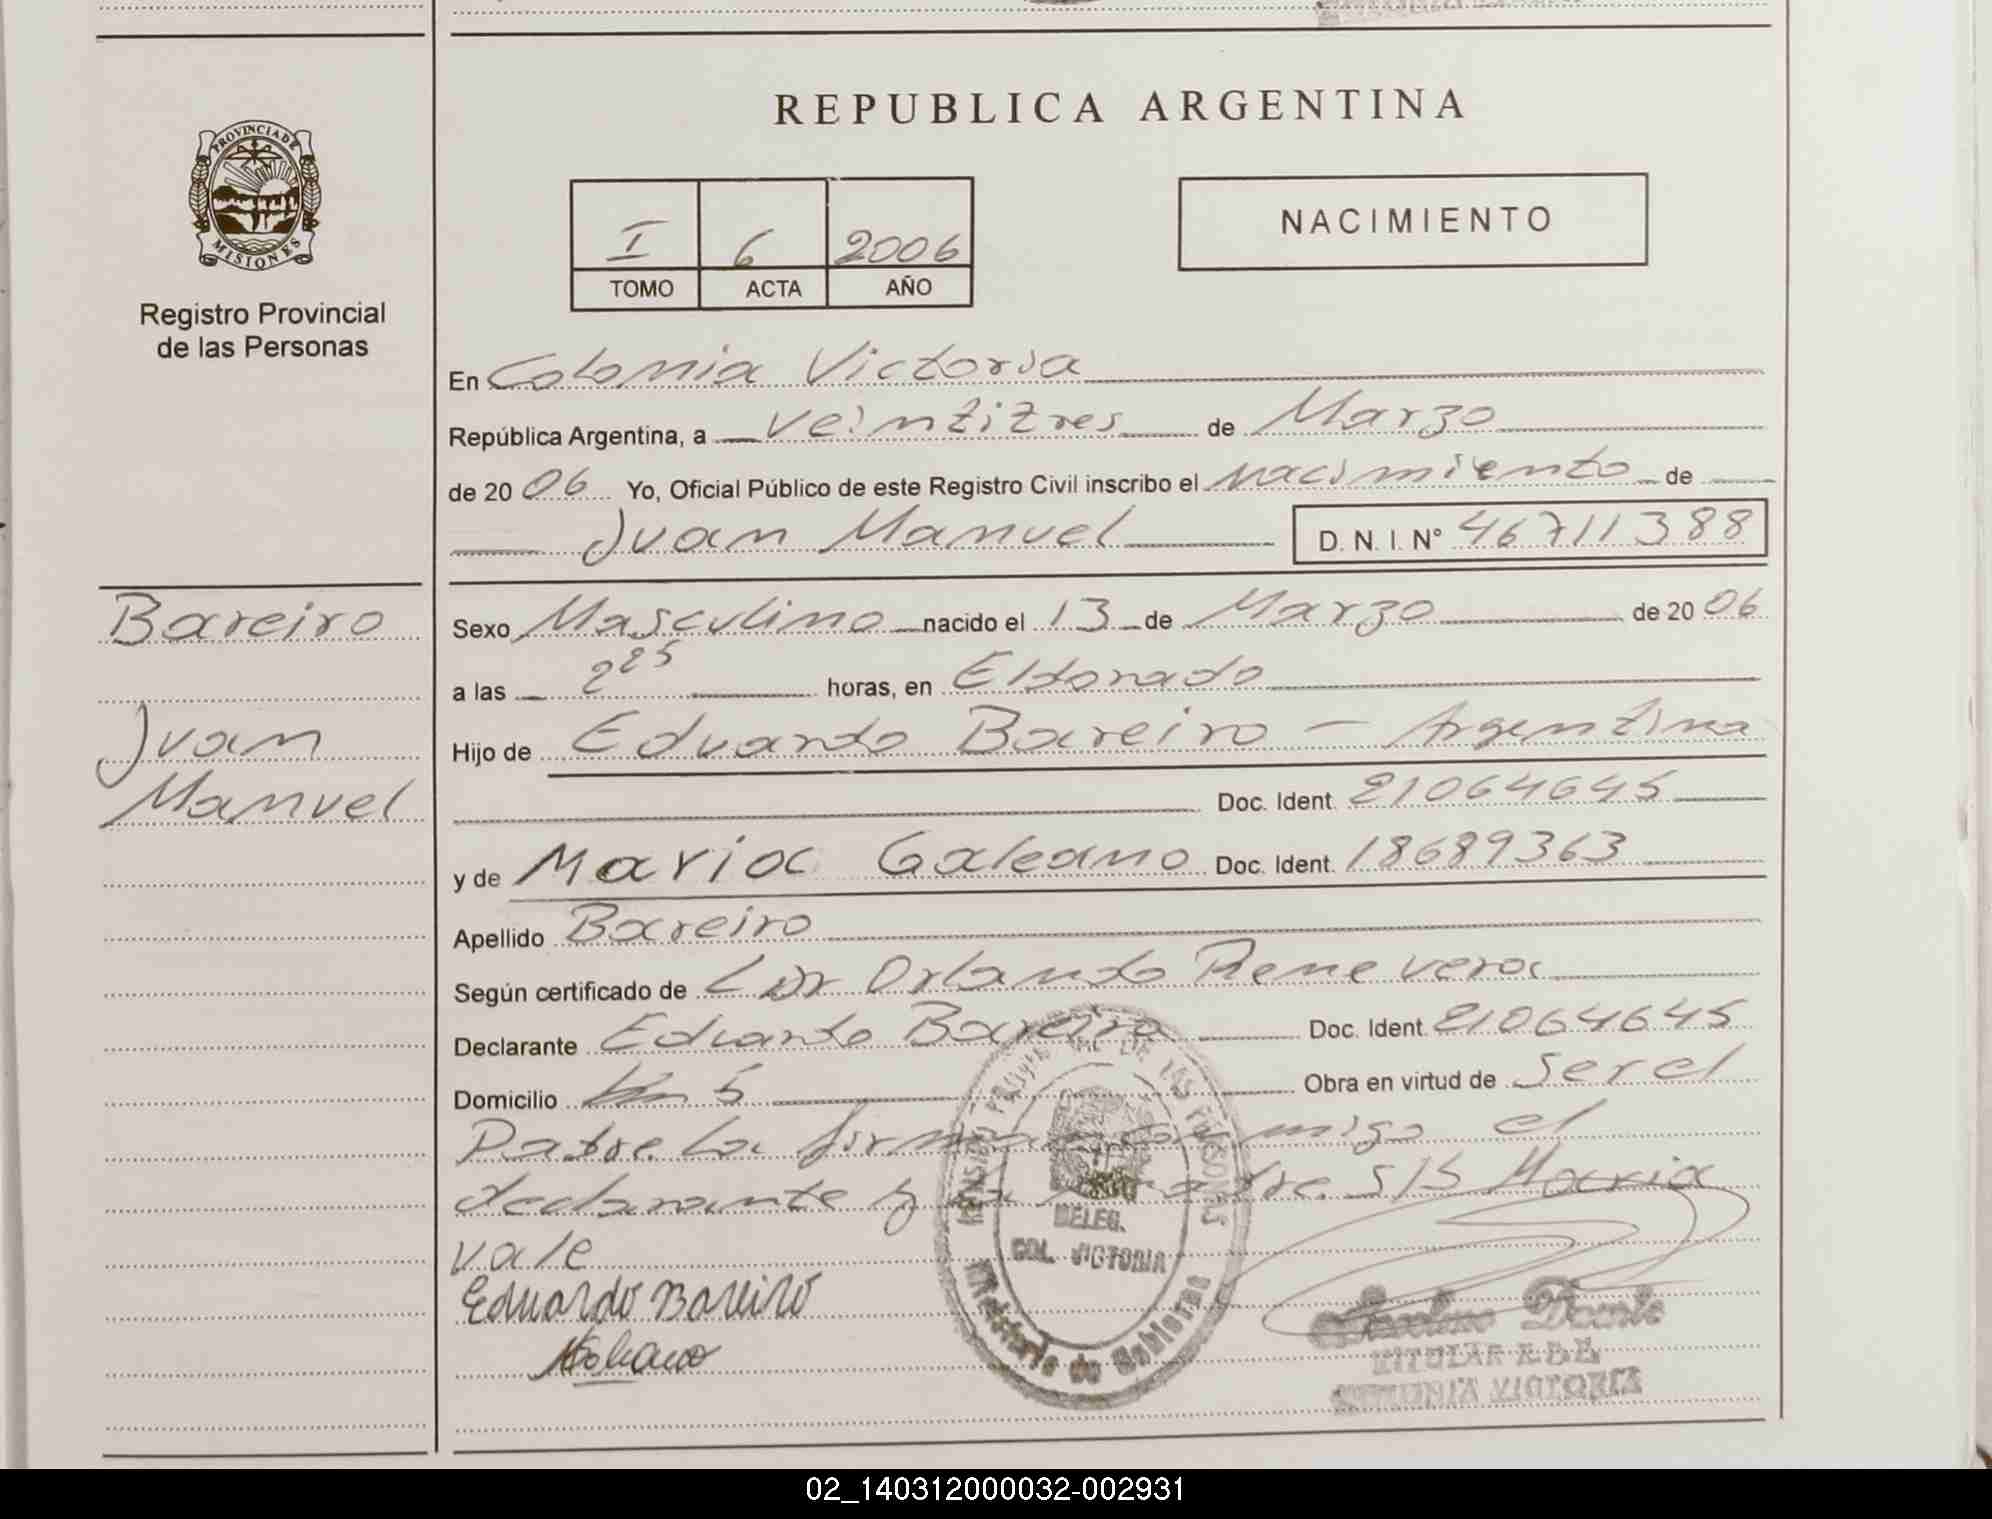 REPUBLICA ARGENTINA
PROVINCIA DE
MISIONES
Registro Provincial
de las Personas
I 6 2006
TOMO ACTA AÑO
NACIMIENTO
En Colonia Victoria
República Argentina, a veintitres de Marzo
de 2006 Yo, Oficial Público de este Registro Civil inscribo el nacimiento de
Juan Manuel D. N. I. N° 46711388
Bareiro
Juan
Manuel
Sexo Masculino nacido el 13 de Marzo de 2006
a las 2 25 horas, en Eldorado
Hijo de Eduardo Bareiro - Argentina
Doc. Ident. 21064645
y de Maria Galeano Doc. Ident. 18689363
Apellido Bareiro
Según certificado de Orlando Rene vera
Declarante Eduardo Bareiro Doc. Ident. 21064645
Domicilio Km 5 Obra en virtud de ser el
Padre. La firman conmigo el
declarante y la Madre. S/B Maria
vale
Eduardo Bareiro
DELEG.
COL. VICTORIA
Ministerio de Gobierno
TITULAR
COLONIA VICTORIA
02_140312000032-002931